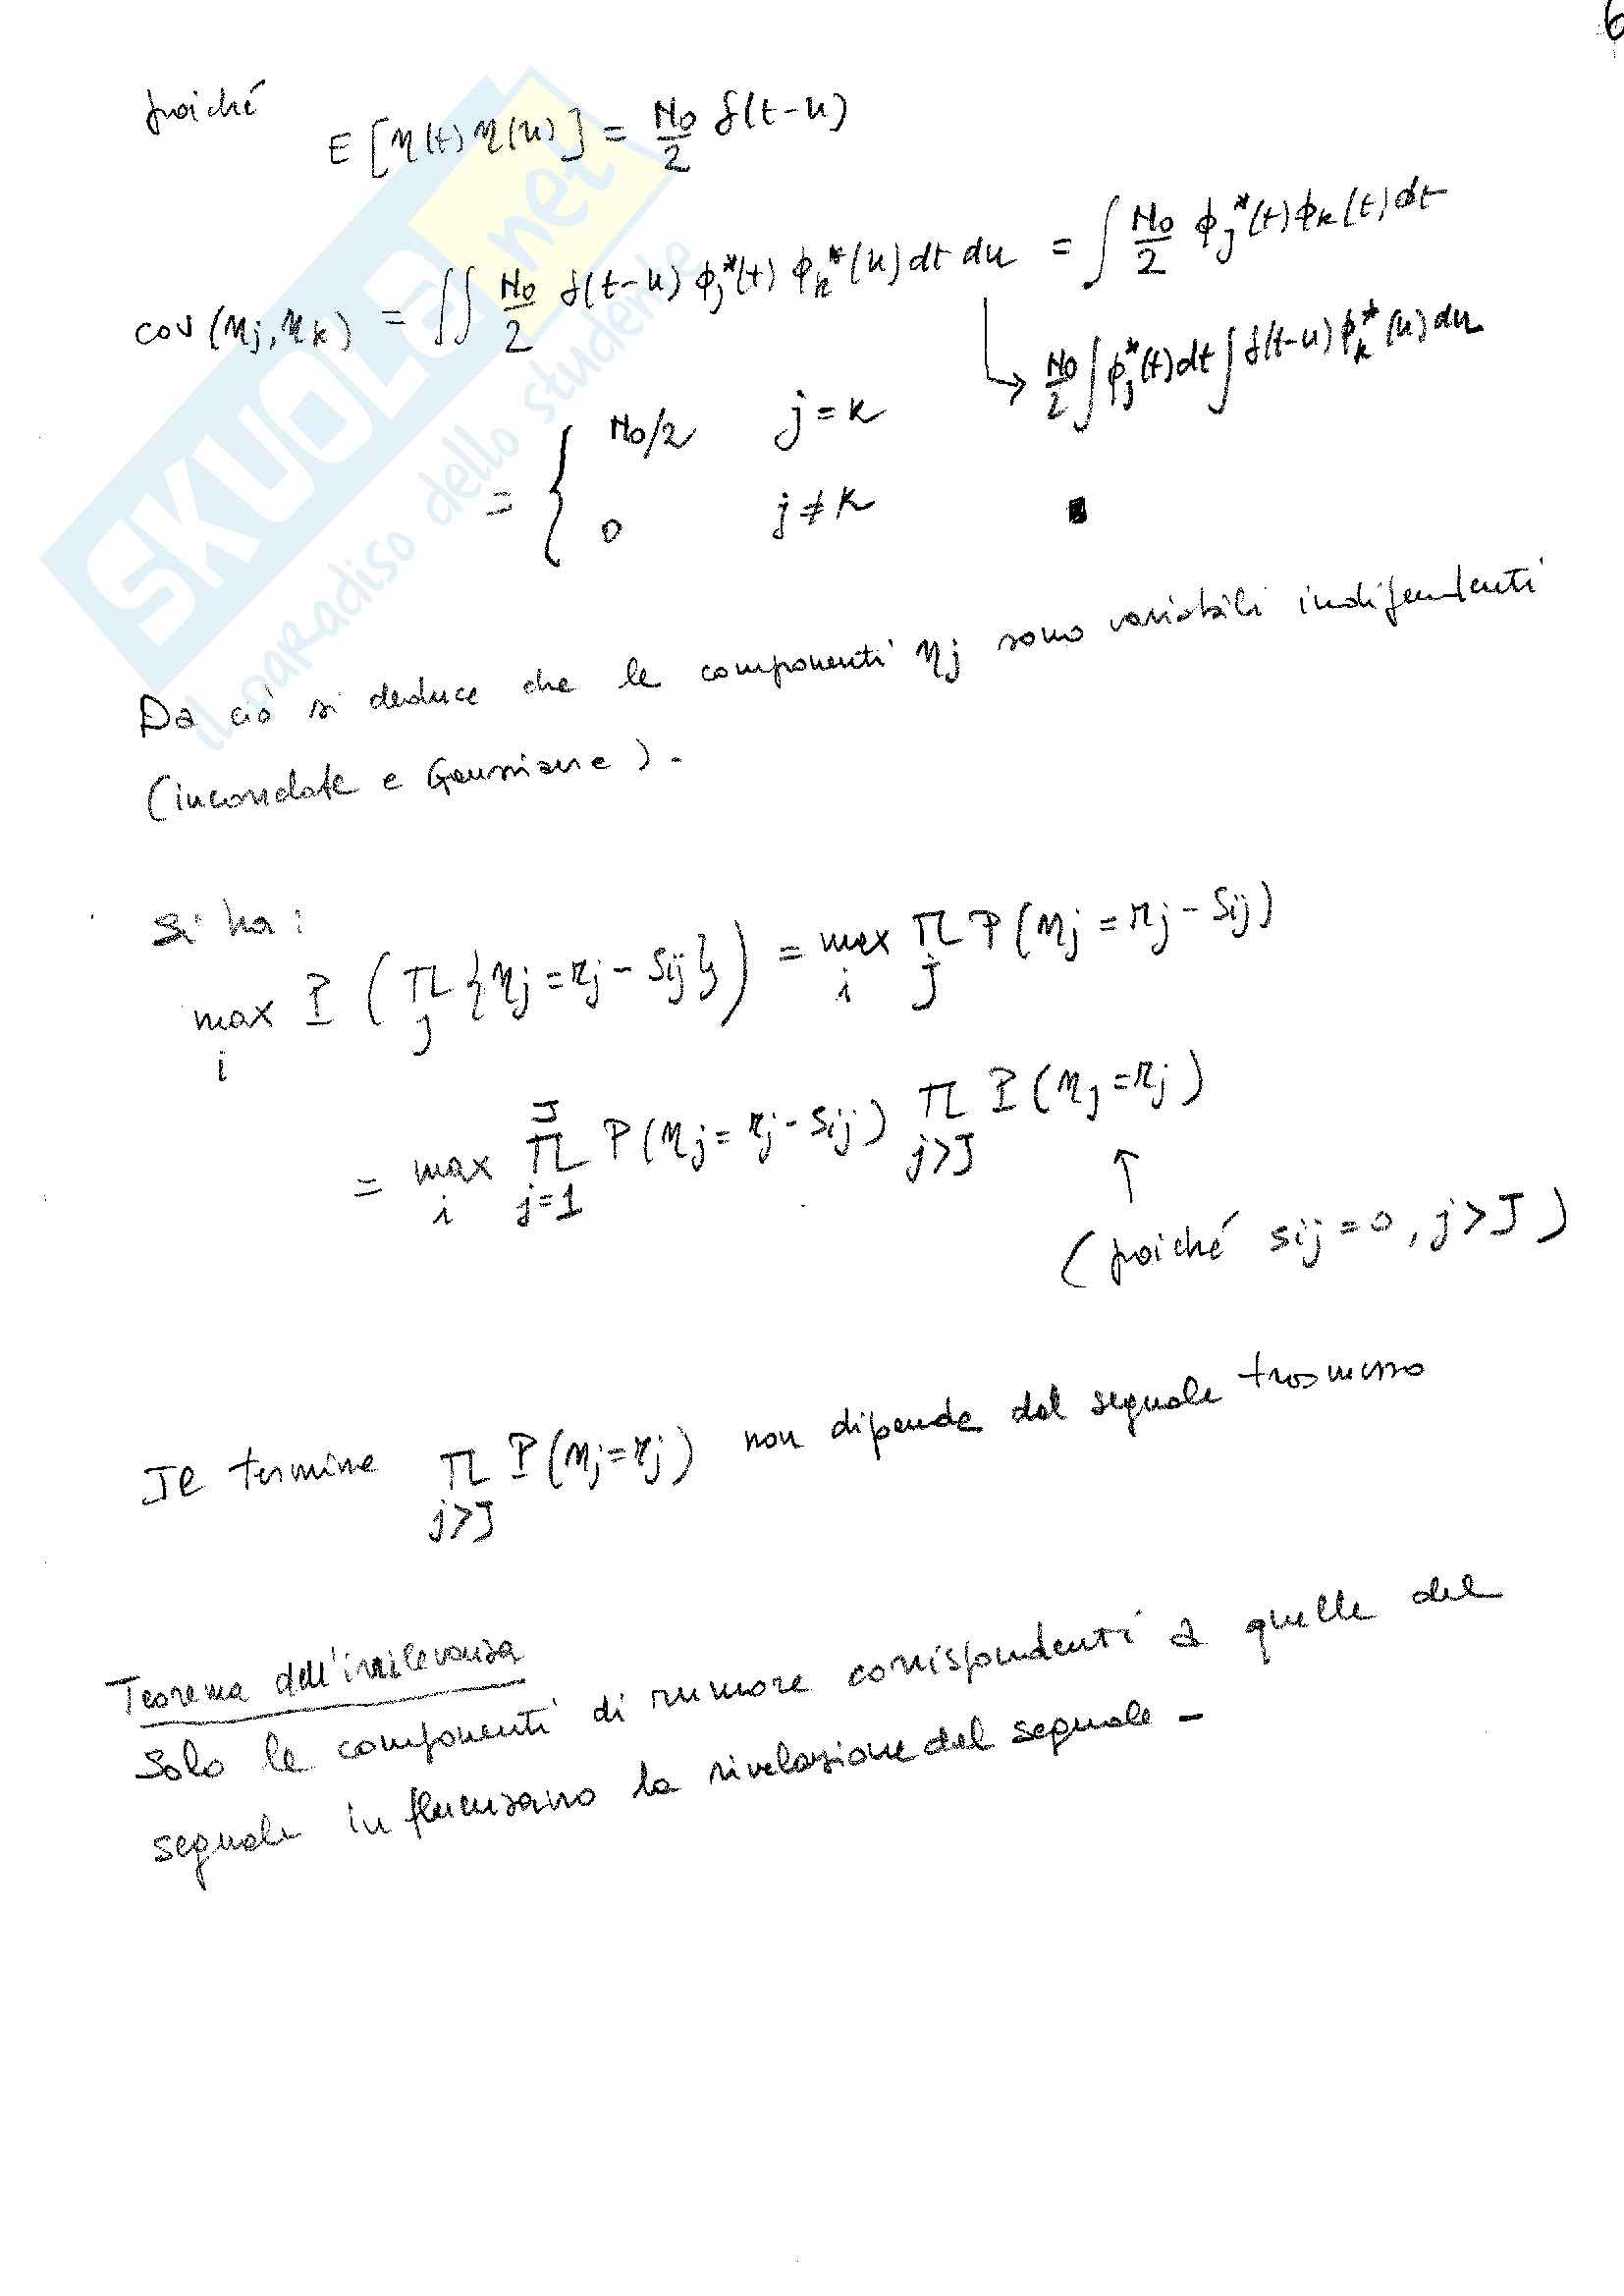 6
poiché
E[η(t)η(u)] = N0/2 δ(t-u)
cov(ηj,ηk) = ∬ N0/2 δ(t-u) ϕj*(t) ϕk*(u) dt du = ∫ N0/2 ϕj*(t) ϕk(t) dt
↳ N0/2 ∫ ϕj*(t) dt ∫ δ(t-u) ϕk*(u) du
= { N0/2 j=k
0 j≠k
Da ciò si deduce che le componenti ηj sono variabili indipendenti
(incorrelate e Gaussiane).
Si ha:
max_i P(∏_j {ηj = rj - sij}) = max_i ∏_j P(ηj = rj - sij)
= max_i ∏_{j=1}^J P(ηj = rj - sij) ∏_{j>J} P(ηj = rj)
↑
(poiché sij = 0, j > J)
Il termine ∏_{j>J} P(ηj = rj) non dipende dal segnale trasmesso
Teorema dell'irrilevanza
Solo le componenti di rumore corrispondenti a quelle del
segnale influenzano la rivelazione del segnale -
SKUOLA.net
Il paradiso dello studente